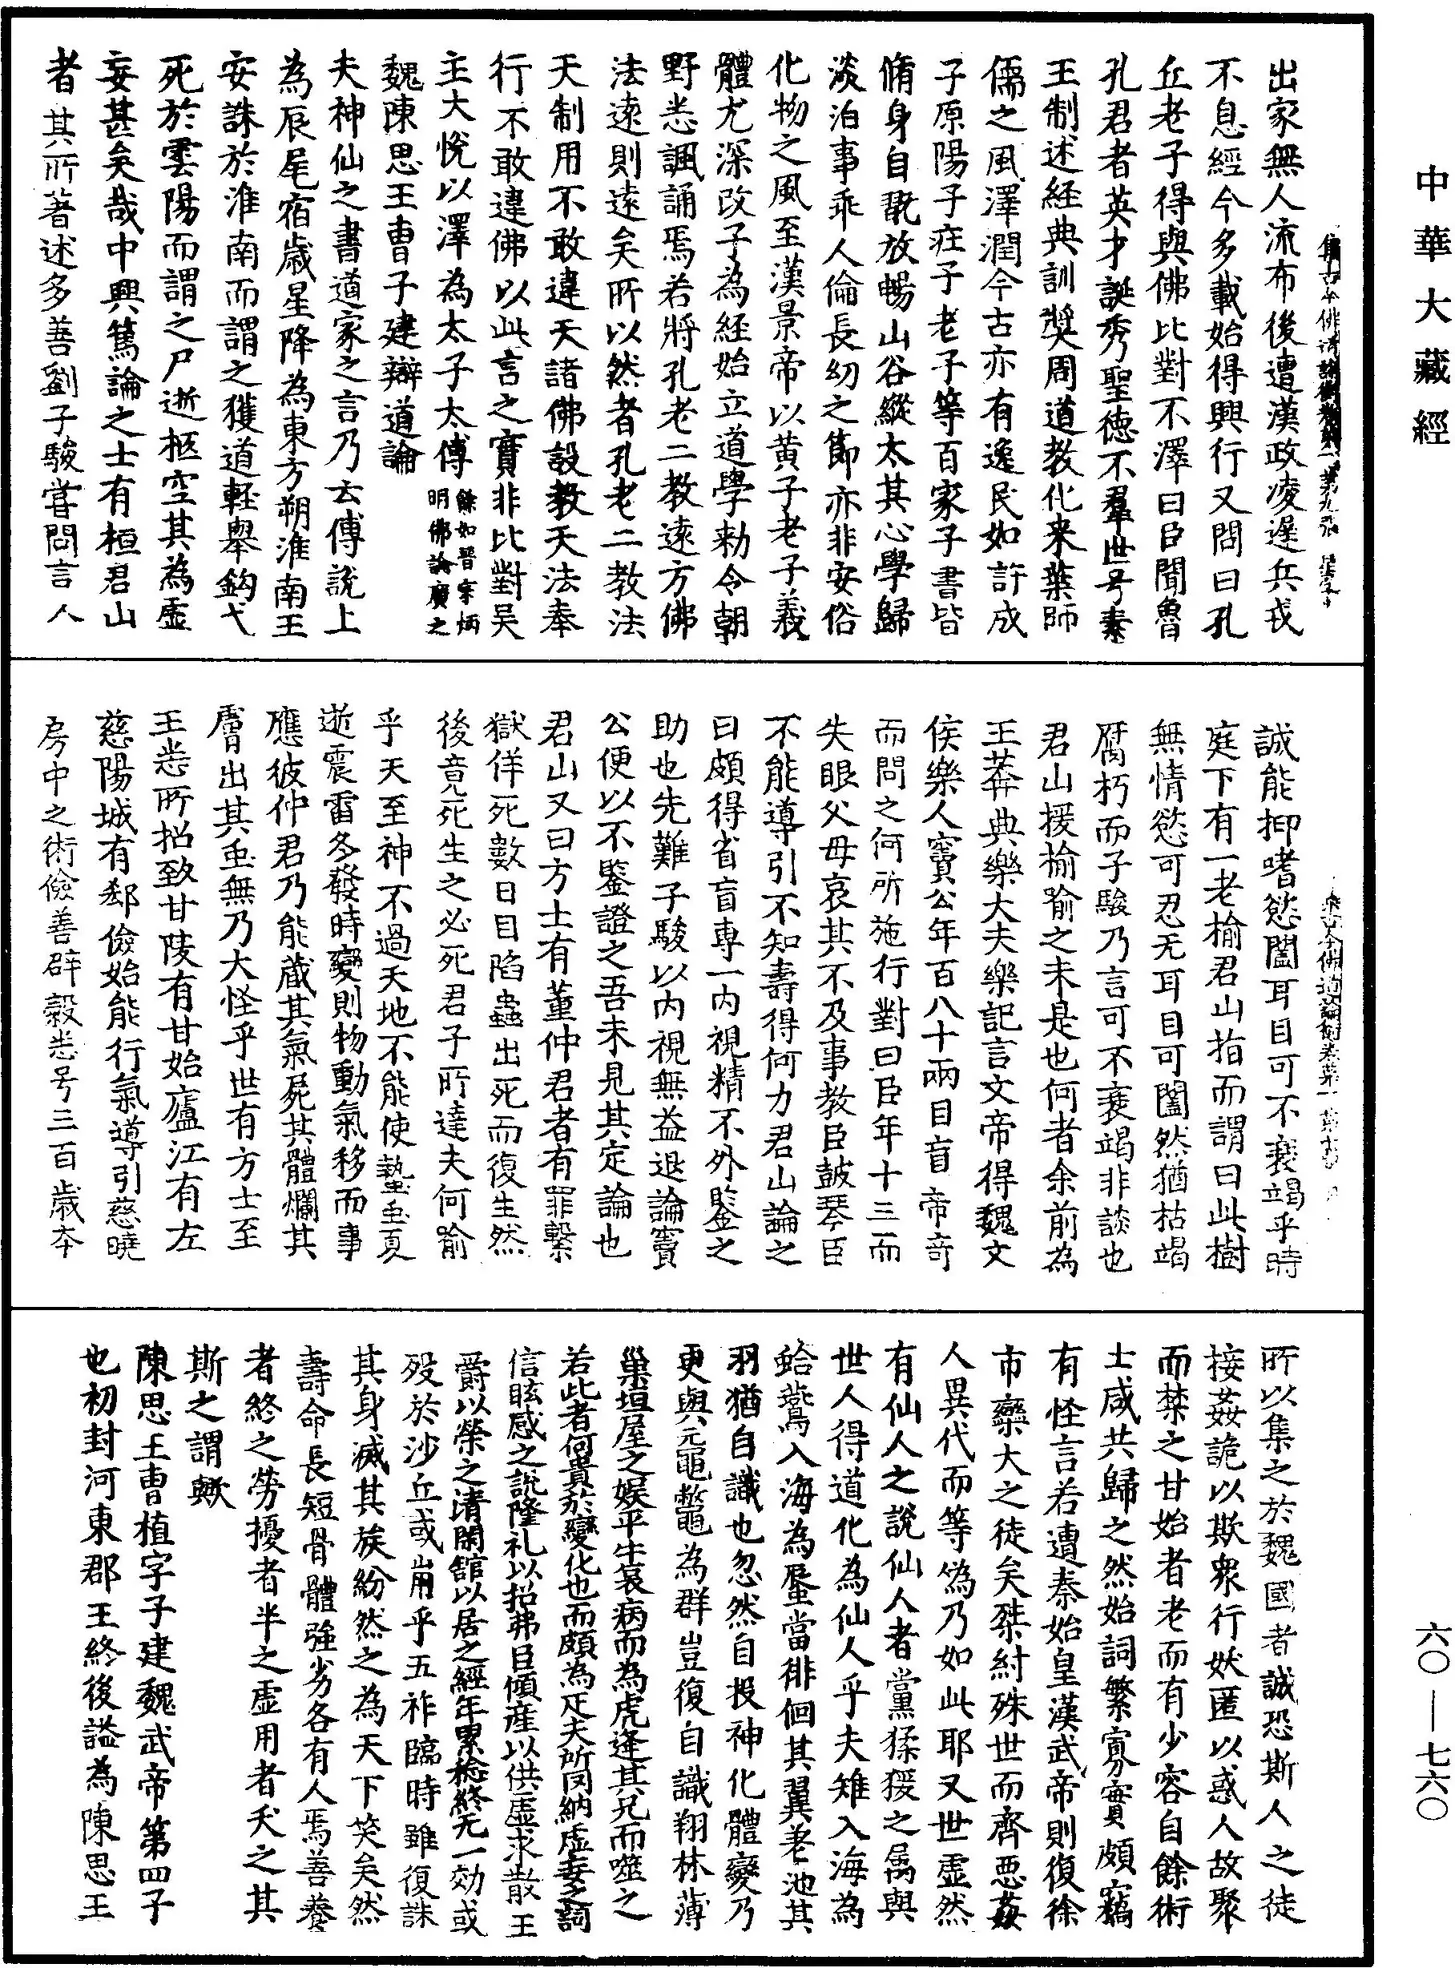 中華大藏經
六〇—七六〇
出家無人流布後遭漢政凌遲兵戎
不息經今多載始得興行又問曰孔
丘老子得與佛比對不澤曰臣聞魯
孔君者英才誕秀聖德不羣世号素
王制述經典訓獎周道教化来葉師
儒之風澤潤今古亦有逸民如許成
子原陽子庄子老子等百家子書皆
脩身自翫放暢山谷縱太其心學歸
淡泊事乖人倫長幼之節亦非安俗
化物之風至漢景帝以黄子老子義
體尤深改子為経始立道學勑令朝
野悉諷誦焉若將孔老二教遠方佛
法遠則遠矣所以然者孔老二教法
天制用不敢違天諸佛設教天法奉
行不敢違佛以此言之實非比對吳
主大悅以澤為太子太傅餘如晉宗炳明佛論廣之
魏陳思王曹子建辯道論
夫神仙之書道家之言乃云傅說上
為辰尾宿歲星降為東方朔淮南王
安誅於淮南而謂之獲道輕舉鈎弋
死於雲陽而謂之尸逝柩空其為虛
妄甚矣哉中興篤論之士有桓君山
者其所著述多善劉子駿嘗問言人
誠能抑嗜慾闔耳目可不衰竭乎時
庭下有一老榆君山指而謂曰此樹
無情慾可忍无耳目可闔然猶枯竭
腐朽而子駿乃言可不衰竭非談也
君山援榆喻之未是也何者余前為
王莽典樂大夫樂記言文帝得魏文
侯樂人竇公年百八十兩目盲帝奇
而問之何所施行對曰臣年十三而
失眼父母哀其不及事教臣鼓琴臣
不能導引不知壽得何力君山論之
曰頗得省盲專一内視精不外鑒之
助也先難子駿以内視無益退論竇
公便以不鑒證之吾未見其定論也
君山又曰方士有董仲君者有罪繫
獄佯死數日目陷蟲出死而復生然
後竟死生之必死君子所達夫何喻
乎天至神不過天地不能使蟄虫夏
逝震雷冬發時變則物動氣移而事
應彼仲君乃能藏其氣屍其體爛其
膚出其虫無乃大怪乎世有方士至
王悉所招致甘陵有甘始廬江有左
慈陽城有郄儉始能行氣導引慈曉
房中之術儉善辟穀悉号三百歲夲
所以集之於魏國者誠恐斯人之徒
接姦詭以欺衆行妖匿以惑人故聚
而禁之甘始者老而有少容自餘術
士咸共歸之然始詞繁寡實頗竊
有怪言若遭秦始皇漢武帝則復徐
市欒大之徒矣桀紂殊世而齊惡姦
人異代而等偽乃如此耶又世虛然
有仙人之說仙人者黨猱猨之屬與
世人得道化為仙人乎夫雉入海為
蛤鷰入海為蜃當徘徊其翼差池其
羽猶自識也忽然自投神化體變乃
更與元黽鼈為群豈復自識翔林薄
巢垣屋之娱乎牛哀病而為虎逢其兄而噬之
若此者何貴於變化也而頗為疋夫所罔納虛妄之詞
信眩惑之說隆礼以招弗臣傾産以供虛求散王
爵以榮之清閑舘以居之經年累稔終无一効或
殁於沙丘或崩乎五祚臨時雖復誅
其身滅其族紛然之為天下笑矣然
壽命長短骨體強劣各有人焉善養
者終之勞擾者半之虛用者夭之其
斯之謂歟
陳思王曹植字子建魏武帝第四子
也初封河東郡王終後謚為陳思王